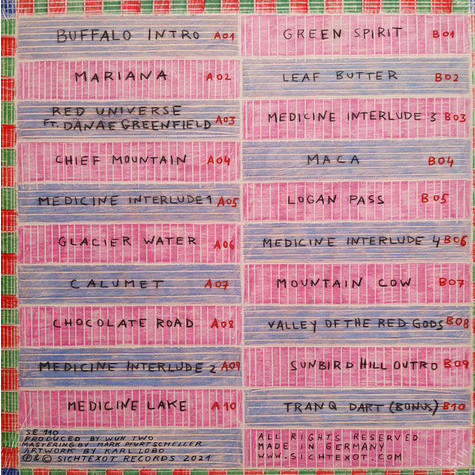 BUFFALO INTRO A01
MARIANA A02
RED UNIVERSE
FT. DANAE GREENFIELD A03
CHIEF MOUNTAIN A04
MEDICINE INTERLUDE 1 A05
GLACIER WATER A06
CALUMET A07
CHOCOLATE ROAD A08
MEDICINE INTERLUDE 2 A09
MEDICINE LAKE A10
GREEN SPIRIT B01
LEAF BUTTER B02
MEDICINE INTERLUDE 3 B03
MACA B04
LOGAN PASS B05
MEDICINE INTERLUDE 4 B06
MOUNTAIN COW B07
VALLEY OF THE RED GODS B08
SUNBIRD HILL OUTRO B09
TRANQ DART (BONUS) B10
SE 110
PRODUCED BY WUN TWO
MASTERING BY MARK MURTSCHELLER
ARTWORK BY KARL LOBO
℗&© SICHTEXOT RECORDS 2021
ALL RIGHTS RESERVED
MADE IN GERMANY
WWW.SICHTEXOT.COM